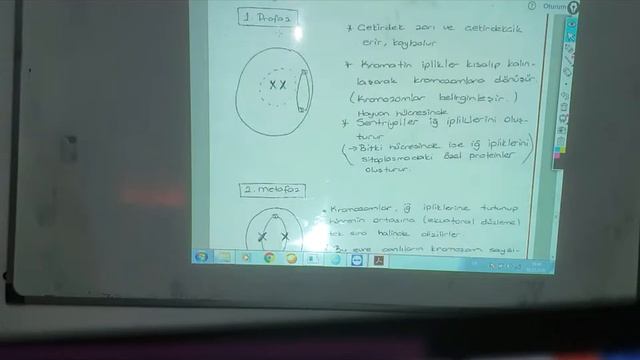 Oturum
1. Profaz
* Çekirdek zarı ve çekirdekcik
erir, kaybolur
* Kromatin iplikler kısalıp kalın-
laşarak kromozomlara dönüşür.
(Kromozomlar belirginleşir.)
Hayvan hücresinde
* Sentriyoller iğ ipliklerini oluş-
turur
(→ Bitki hücresinde ise iğ ipliklerini
sitoplasmadaki özel proteinler
oluşturur.
2. metafaz
• Kromozomlar, iğ ipliklerine tutunup
hücrenin ortasına (ekvatoral düzleme)
tek sıra halinde dizilirler.
• Bu evre canlıların kromozom sayısı-